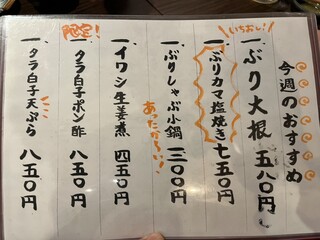 今週のおすすめ
一、ぶり大根 五八〇円
いちおし!
一、ぶりカマ塩焼き 七五〇円
一、ぶりしゃぶ小鍋 一三〇〇円
あったか〜い!
一、イワシ生姜煮 四五〇円
限定!
一、タラ白子ポン酢 八五〇円
一、タラ白子天ぷら 八五〇円